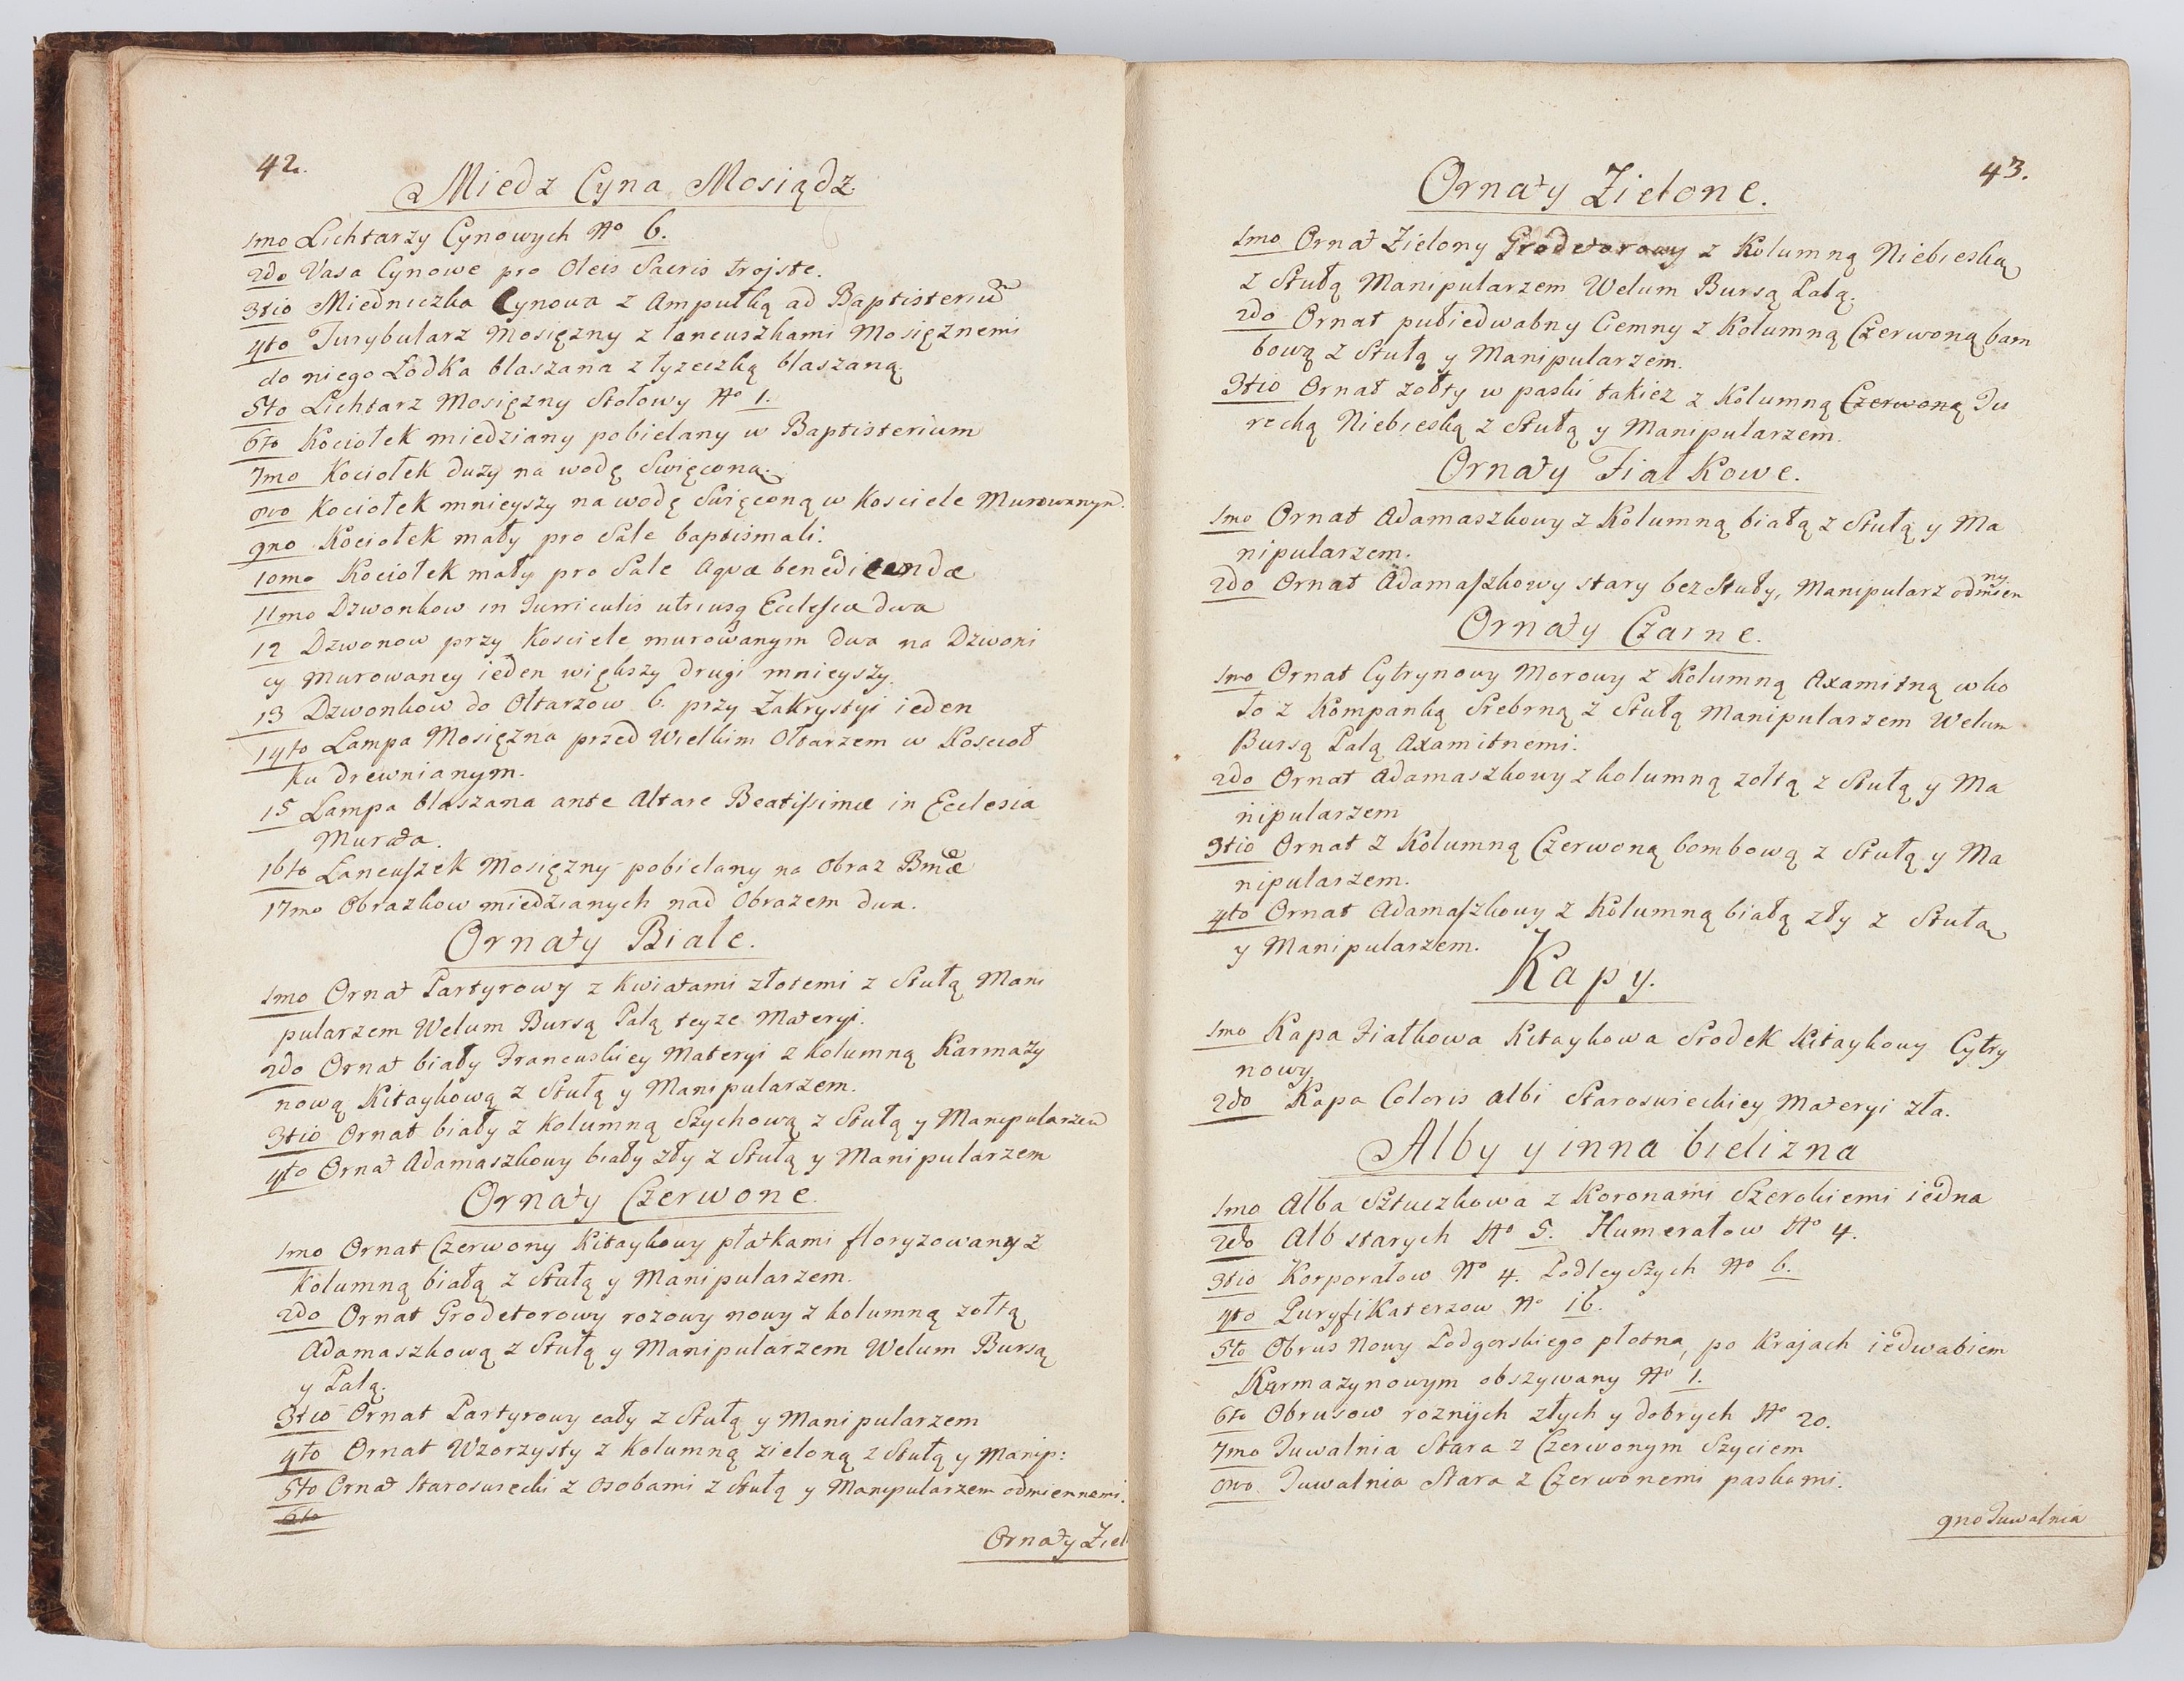 42.
Miedz Cyna Mosiądz.
1mo Lichtarzy Cynowych No 6.
2do Vasa Cynowe pro Oleis Sacris trojste.
3tio Miedniczka Cynowa z Ampułką ad Baptisteriu
4to Turybularz Mosięzny z łancuszkami Mosięznemi
do niego Łodka blaszana z łyzeczką blaszaną.
5to Lichtarz Mosięzny Stołowy No 1.
6to Kociołek miedziany pobielany w Baptisterium
7mo Kociołek duzy na wodę Swięconą.
8vo Kociołek mnieyszy na wodę Swięconą w Kosciele Murowanym.
9no Kociołek mały pro Sale baptismali.
10mo Kociołek mały pro Sale Aquæ benedicendæ
11mo Dzwonkow in Turriculis utriusq Ecclesiæ dwa
12 Dzwonow przy Kosciele murowanym dwa na Dzwoni
cy Murowaney ieden większy drugi mnieyszy.
13 Dzwonkow do Ołtarzow 6. przy Zakrystyi ieden
14to Lampa Mosięzna przed Wielkim Ołtarzem w Koscioł
ku drewnianym.
15 Lampa blaszana ante Altare Beatissimæ in Ecclesia
Murata.
16to Lancuszek Mosięzny pobielany na Obraz Bmæ
17mo Obrazkow miedzianych nad Obrazem dwa.
Ornaty Białe.
1mo Ornat Partyrowy z Kwiatami złotemi z Stułą Mani
pularzem Welum Bursą Palą teyze Materyi.
2do Ornat biały Francuskiey Materyi z Kolumną Karmazy
nową Kitaykową z Stułą y Manipularzem.
3tio Ornat biały z Kolumną Szychową z Stułą y Manipularzem
4to Ornat Adamaszkowy biały zły z Stułą y Manipularzem
Ornaty Czerwone.
1mo Ornat Czerwony Kitaykowy płatkami floryzowany z
Kolumną białą z Stułą y Manipularzem.
2do Ornat Grodetorowy rozowy nowy z kolumną zołtą
Adamaszkową z Stułą y Manipularzem Welum Bursą
y Palą.
3tio Ornat Partyrowy cały z Stułą y Manipularzem
4to Ornat Wzorzysty z Kolumną zieloną z Stułą y Manip:
5to Ornat Staroswiecki z osobami z Stułą y Manipularzem odmiennemi.
6to
Ornaty Ziel
43.
Ornaty Zielone.
1mo Ornat Zielony Grodetorowy z Kolumną Niebieską
z Stułą Manipularzem Welum Bursą Palą.
2do Ornat pułiedwabny Ciemny z Kolumną Czerwoną bam
bową z Stułą y Manipularzem.
3tio Ornat zołty w paski takiez z Kolumną Czerwoną Tu
recką Niebieską z Stułą y Manipularzem.
Ornaty Fiałkowe.
1mo Ornat Adamaszkowy z Kolumną białą z Stułą y Ma
nipularzem.
2do Ornat Adamaszkowy stary bez Stuły, Manipularz odmien
ny.
Ornaty Czarne.
1mo Ornat Cytrynowy Morowy z Kolumną Axamitną wko
ło z Kompanką Srebrną z Stułą Manipularzem Welum
Bursą Palą Axamitnemi.
2do Ornat Adamaszkowy z kolumną zołtą z Stułą y Ma
nipularzem
3tio Ornat z Kolumną Czerwoną bombową z Stułą y Ma
nipularzem.
4to Ornat Adamaszkowy z Kolumną białą zły z Stułą
y Manipularzem.
Kapy.
1mo Kapa Fiałkowa Kitaykowa Srodek Kitaykowy Cytry
nowy.
2do Kapa Coloris albi Staroswieckiey Materyi zła.
Alby y inna bielizna
1mo Alba Sztuczkowa z Koronami Szerokiemi iedna
2do Alb starych No 5. Humerałow No 4.
3tio Korporałow No 4. Podleyszych No 6.
4to Puryfikaterzow No 16.
5to Obrus Nowy Podgorskiego płotna, po Krajach iedwabiem
Karmazynowym obszywany No 1.
6to Obrusow roznych złych y dobrych No 20.
7mo Tuwalnia Stara z Czerwonym Szyciem
8vo Tuwalnia Stara z Czerwonemi paskami.
9no Tuwalnia